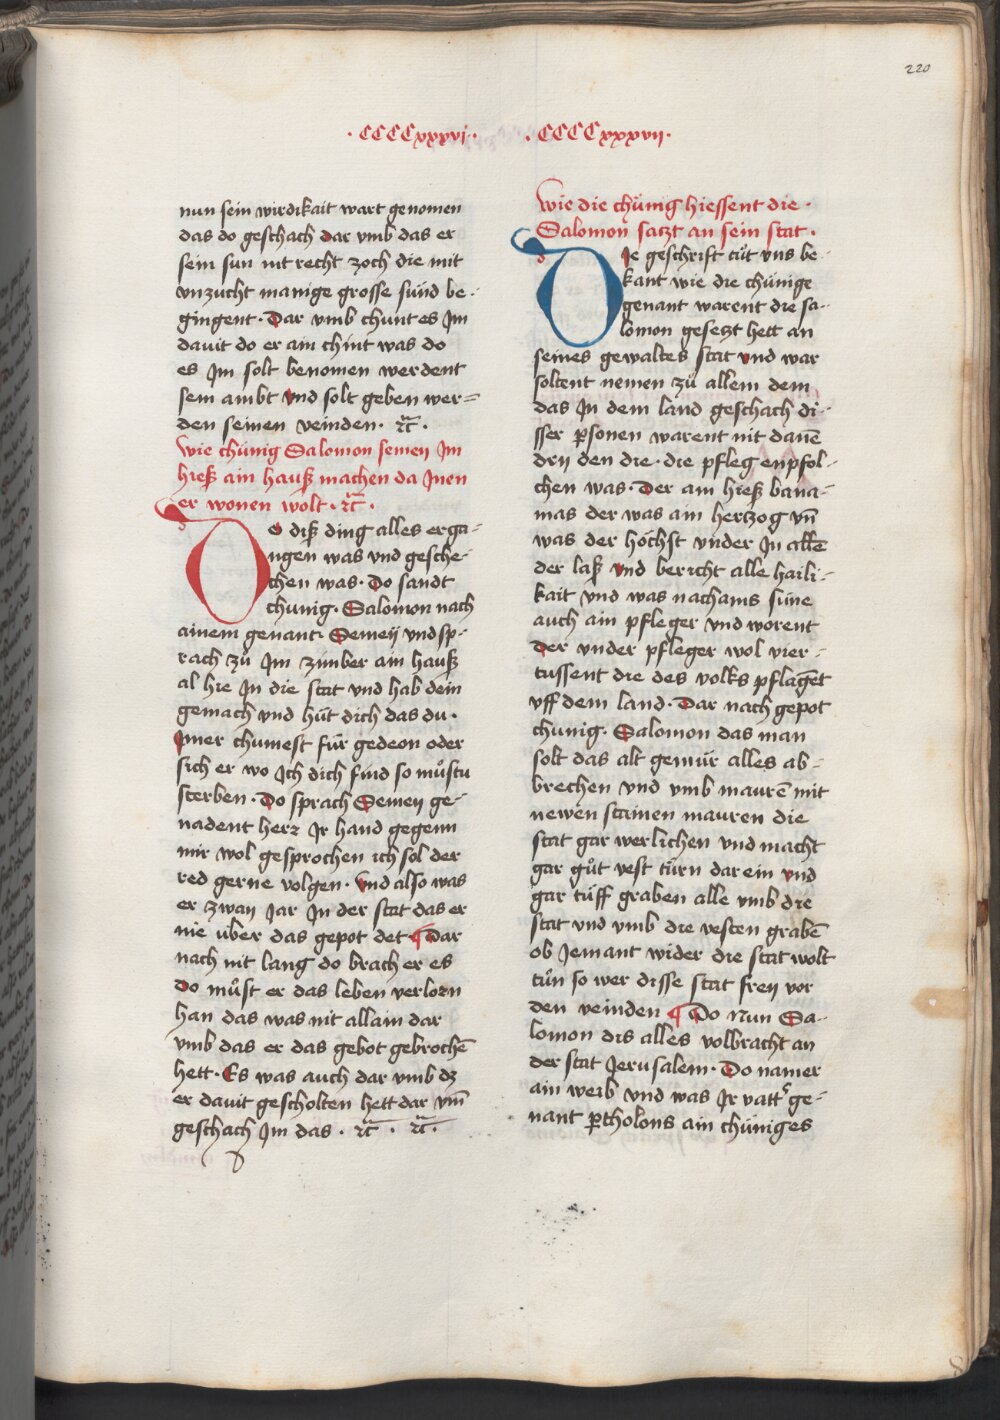 220
· CCCCxxxvi ·
nun sein wirdikait wart genomen
das do geschach dar vmb das er
sein sun nit recht zoch die mit
vnzucht manige grosse sünd be-
gingent · Dar vmb chunt es Im
dauit do er ain chint was do
es Im solt benomen werdent
sein ambt vnd solt geben wer=
den seinen veinden · rc̄ ·
Wie chünig Salomon semey Im
hieß ain hauß machen da Inen
er wonen wolt · rc̄ ·
Do diß ding alles erga-
ngen was vnd gesche-
chen was · Do sandt
chunig · Salomon nach
ainem genant · Semeij vnd sp-
rach zů Im zimber ain hauß
al hie In die stat vnd hab dein
gemach vnd hüt dich das du ·
Imer chumest für gedeon oder
sich er wo Ich dich find so můstu
sterben · Do sprach Semey ge-
nadent herr Ir hand gegenn
mir wol gesprochen ich sol der
red gerne volgen · Vnd also was
er zwaÿ Jar In der stat das er
nie über das gepot det ¶ Dar
nach nit lang do brach er es
Do můst er das leben verlorn
han das was nit allain dar
vmb das er das gebot gebrochē
hett · Es was auch dar vmb dz
er dauit gescholten hett dar vm̄
geschach Im das · rc̄ · rc̄ ·
· CCCCxxxvii ·
Wie die chünig hiessent die ·
Salomon satzt an sein stat ·
Die geschrift tůt vns be-
kant wie die chünige
genant warent die sa-
lomon gesetzt hett an
seines gewaltes stat vnd war
soltent nemen zů allem dem
das In dem land geschach di-
sser ꝑsonen warent nit dañe
drij den die · die pfleg enpfol-
chen was · Der ain hieß bana-
mas der was ain hertzog vn̄
was der höchst vnder In allē
der laß vnd bericht alle haili-
kait vnd was nachams süne
auch ain pfleger vnd worent
Der vnder pfleger wol vier-
tussent die des volks pflagēt
vff dem land · Dar nach gepot
chunig · Salomon das man
solt das alt gemür alles ab-
brechen vnd vmb maurē mit
newen stainen mauren die
stat gar werlichen vnd macht
gar gůt vest türn dar ein vnd
gar tüff graben alle vmb die
stat vnd vmb die vesten grabē
ob Jemant wider die stat wolt
tůn so wer disse stat freij vor
den veinden ¶ Do nun Sa-
lomon dis alles volbracht an
der stat Jerusalem · Do namer
ain weib vnd was Ir vattˢ ge-
nant ꝑtholons ain chüniges